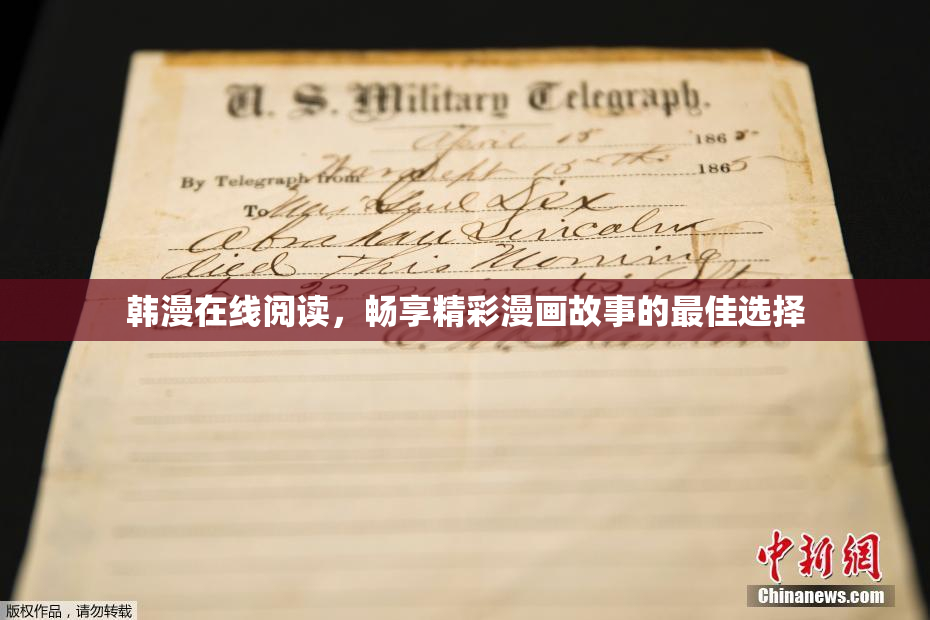 U. S. Military Telegraph.
April 15 1865
By Telegraph from War Dept 15th 1865
To Maj Genl Dix
Abraham Lincoln
died This Morning
at 22 minutes after
韩漫在线阅读，畅享精彩漫画故事的最佳选择
E. M. Stanton
中新网
Chinanews.com
版权作品，请勿转载